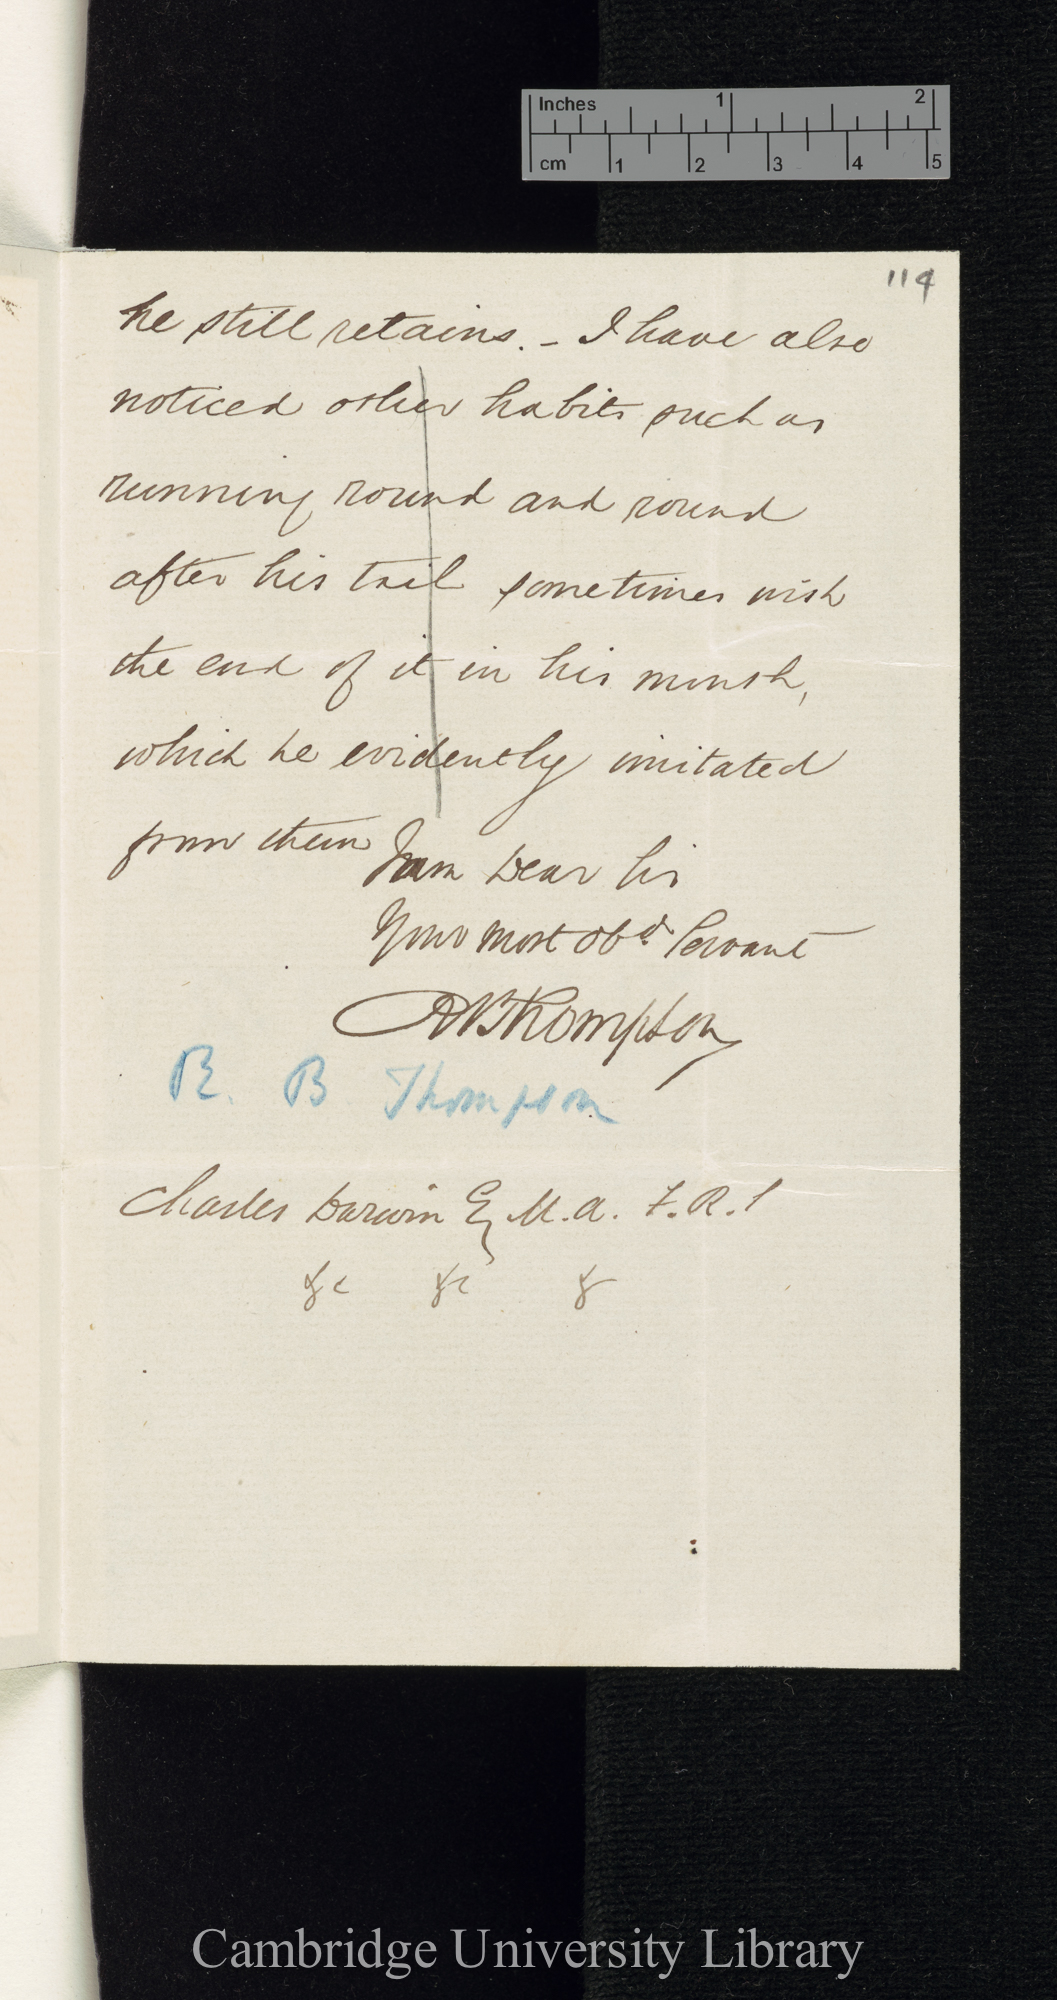 Inches 1 2
cm 1 2 3 4 5
114
he still retains. – I have also
noticed other habits such as
running round and round
after his tail sometimes with
the end of it in his mouth,
which he evidently imitated
from them
I am Dear Sir
Your most obd. Servant
RBThompson
R. B Thompson
Charles Darwin Esq M.A. F.R.S
&c &c &
Cambridge University Library